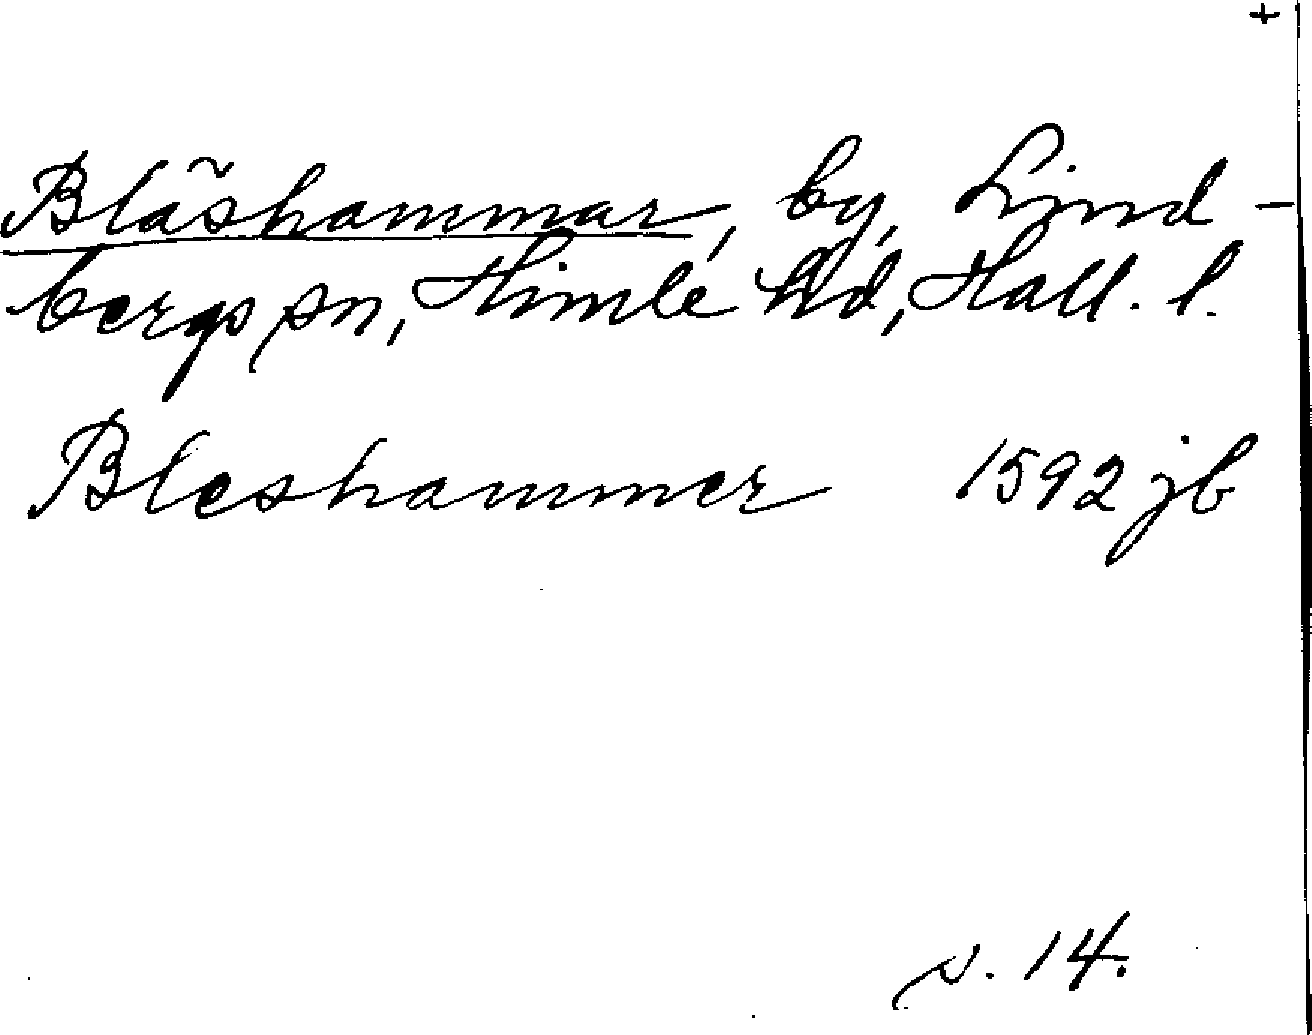 +
Bläshammar, by, Lind-
bergs sn, Himle hd, Hall. l.
Bleshammer 1592 jb
s. 14.